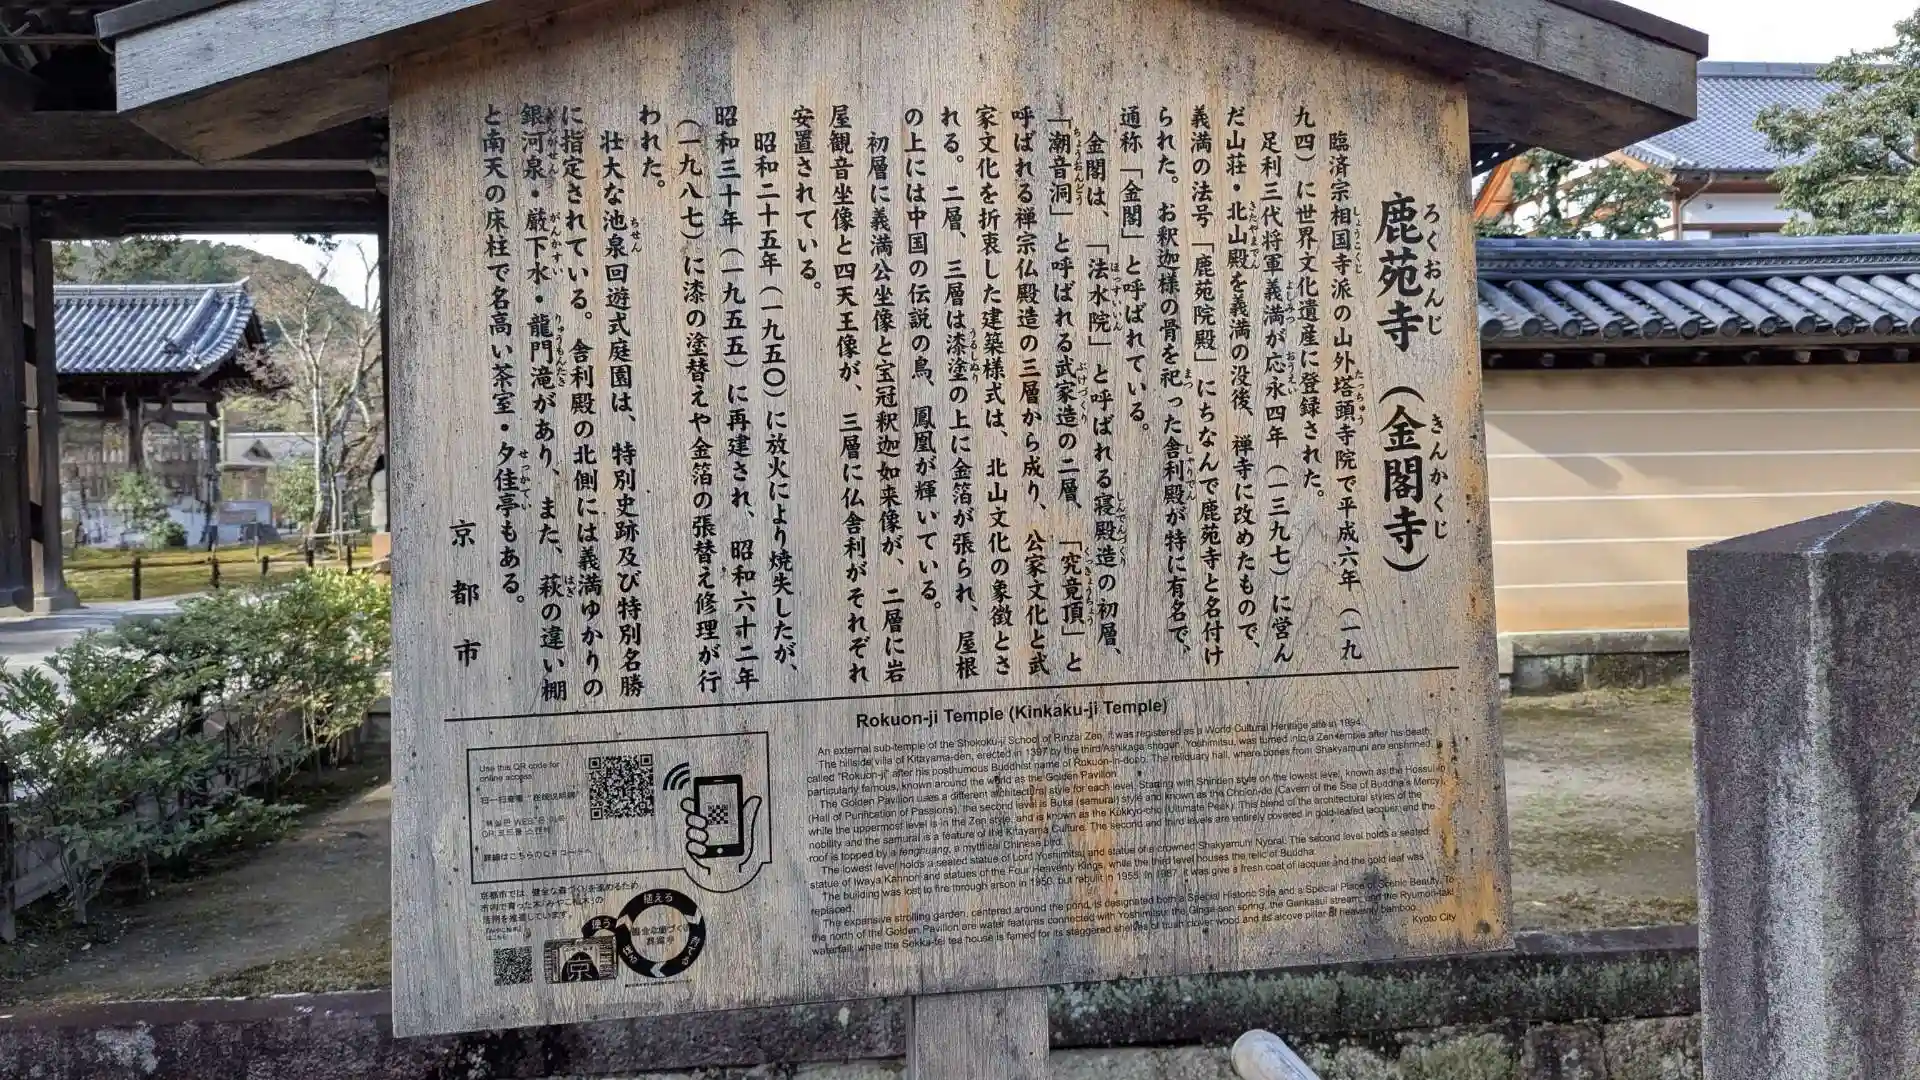 鹿苑寺（金閣寺）
ろくおんじ　きんかくじ
臨済宗相国寺派の山外塔頭寺院で平成六年（一九
しょうこくじ　たっちゅう
九四）に世界文化遺産に登録された。
足利三代将軍義満が応永四年（一三九七）に営ん
よしみつ　おうえい
だ山荘・北山殿を義満の没後、禅寺に改めたもので、
きたやまでん
義満の法号「鹿苑院殿」にちなんで鹿苑寺と名付け
られた。お釈迦様の骨を祀った舎利殿が特に有名で、
まつ　しゃりでん
通称「金閣」と呼ばれている。
金閣は、「法水院」と呼ばれる寝殿造の初層、
ほすいいん　しんでんづくり
「潮音洞」と呼ばれる武家造の二層、「究竟頂」と
ちょうおんどう　ぶけづくり　くっきょうちょう
呼ばれる禅宗仏殿造の三層から成り、公家文化と武
家文化を折衷した建築様式は、北山文化の象徴とさ
れる。二層、三層は漆塗の上に金箔が張られ、屋根
うるしぬり
の上には中国の伝説の鳥、鳳凰が輝いている。
初層に義満公坐像と宝冠釈迦如来像が、二層に岩
屋観音坐像と四天王像が、三層に仏舎利がそれぞれ
安置されている。
昭和二十五年（一九五〇）に放火により焼失したが、
昭和三十年（一九五五）に再建され、昭和六十二年
（一九八七）に漆の塗替えや金箔の張替え修理が行
われた。
壮大な池泉回遊式庭園は、特別史跡及び特別名勝
ちせん
に指定されている。舎利殿の北側には義満ゆかりの
銀河泉・巌下水・龍門滝があり、また、萩の違い棚
ぎんがせん　がんかすい　りゅうもんたき　はぎ
と南天の床柱で名高い茶室・夕佳亭もある。
せっかてい
京都市
Rokuon-ji Temple (Kinkaku-ji Temple)
An external sub-temple of the Shokoku-ji School of Rinzai Zen, it was registered as a World Cultural Heritage site in 1994.
The hillside villa of Kitayama-den, erected in 1397 by the third Ashikaga shogun, Yoshimitsu, was turned into a Zen temple after his death,
called "Rokuon-ji" after his posthumous Buddhist name of Rokuon-in-dono. The reliquary hall, where bones from Shakyamuni are enshrined, is
particularly famous, known around the world as the Golden Pavilion.
The Golden Pavilion uses a different architectural style for each level. Starting with Shinden style on the lowest level, known as the Hossui-in
(Hall of Purification of Passions), the second level is Buke (samurai) style and known as the Choon-do (Cavern of the Sea of Buddha's Mercy),
while the uppermost level is in the Zen style, and is known as the Kukkyo-cho (Ultimate Peak). This blend of the architectural styles of the
nobility and the samurai is a feature of the Kitayama Culture. The second and third levels are entirely covered in gold-leafed lacquer, and the
roof is topped by a fenghuang, a mythical Chinese bird.
The lowest level holds a seated statue of Lord Yoshimitsu and statue of a crowned Shakyamuni Nyorai. The second level holds a seated
statue of Iwaya Kannon and statues of the Four Heavenly Kings, while the third level houses the relic of Buddha.
The building was lost to fire through arson in 1950, but rebuilt in 1955. In 1987, it was give a fresh coat of lacquer and the gold leaf was
replaced.
The expansive strolling garden, centered around the pond, is designated both a Special Historic Site and a Special Place of Scenic Beauty. To
the north of the Golden Pavilion are water features connected with Yoshimitsu: the Ginga-sen spring, the Gankasui stream, and the Ryumon-taki
waterfall; while the Sekka-tei tea house is famed for its staggered shelves of bush clover wood and its alcove pillar of heavenly bamboo.
Kyoto City
Use this QR code for
online access.
QR
詳細はこちらのQRコードへ
京都市では、健全な森づくりを進めるため、
市内で育った木「みやこ杣木」の
活用を推進しています。
植える
育てる
使う
京